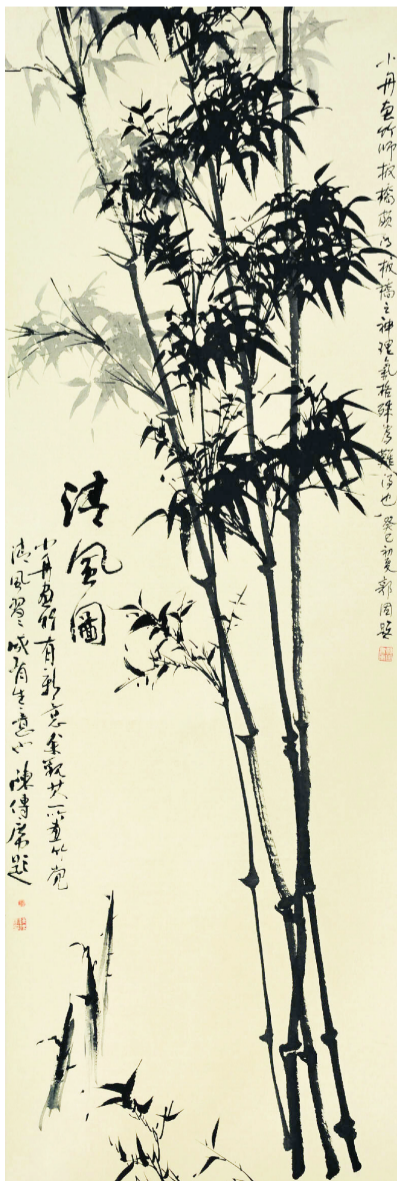 小丹画竹师板桥颇得板桥之神理气格殊为难得也癸巳初夏郭因题
清风圖
小丹画竹有新意余观其所画竹觉
清风習々咸有生意也 陳傳席题